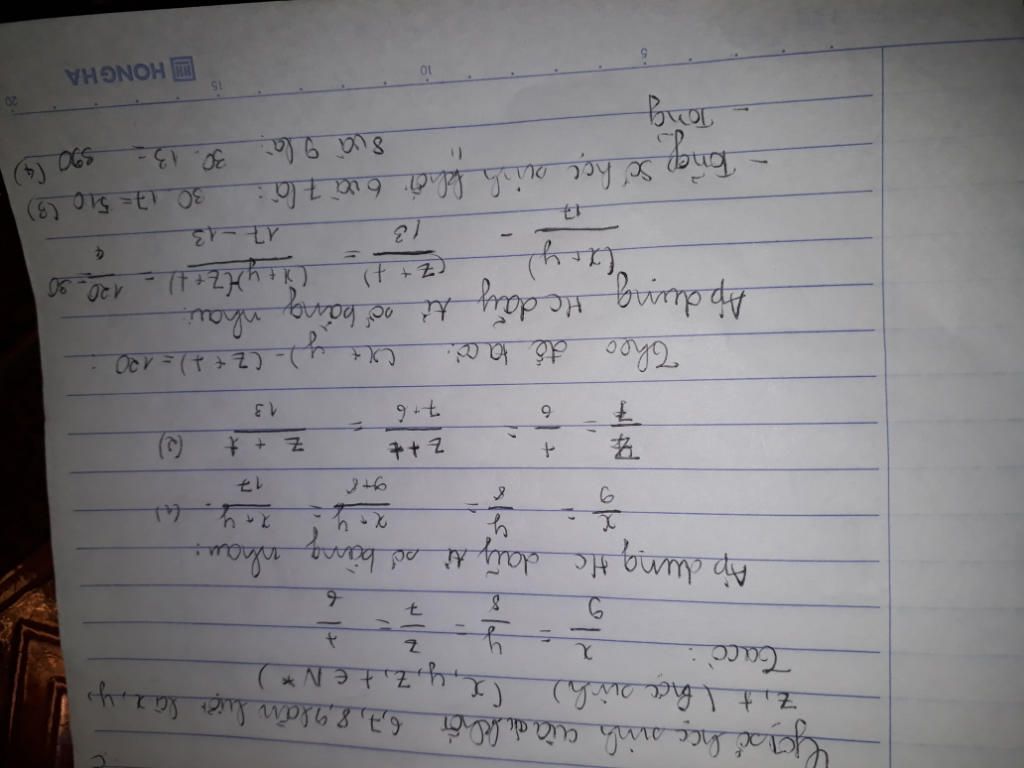 Gọi số học sinh của 4 khối 6,7,8,9 lần lượt là x, y,
z, t (học sinh) (x, y, z, t ∈ N*)
Ta có: x/9 = y/8 = z/7 = t/6
Áp dụng tc dãy tỉ số bằng nhau:
x/9 = y/8 = x+y/9+8 = x+y/17 (1)
z/7 = t/6 = z+t/7+6 = z+t/13 (2)
Theo đề ta có: (x+y) - (z+t) = 120 :
Áp dụng tc dãy tỉ số bằng nhau:
(x+y)/17 - (z+t)/13 = (x+y)-(z+t)/17-13 = 120/4 = 30
- Tổng số học sinh khối 6 và 7 là: 30.17 = 510 (3)
- Tổng " 8 và 9 là: 30.13 = 390 (4)
HONG HA
5 10 15 20